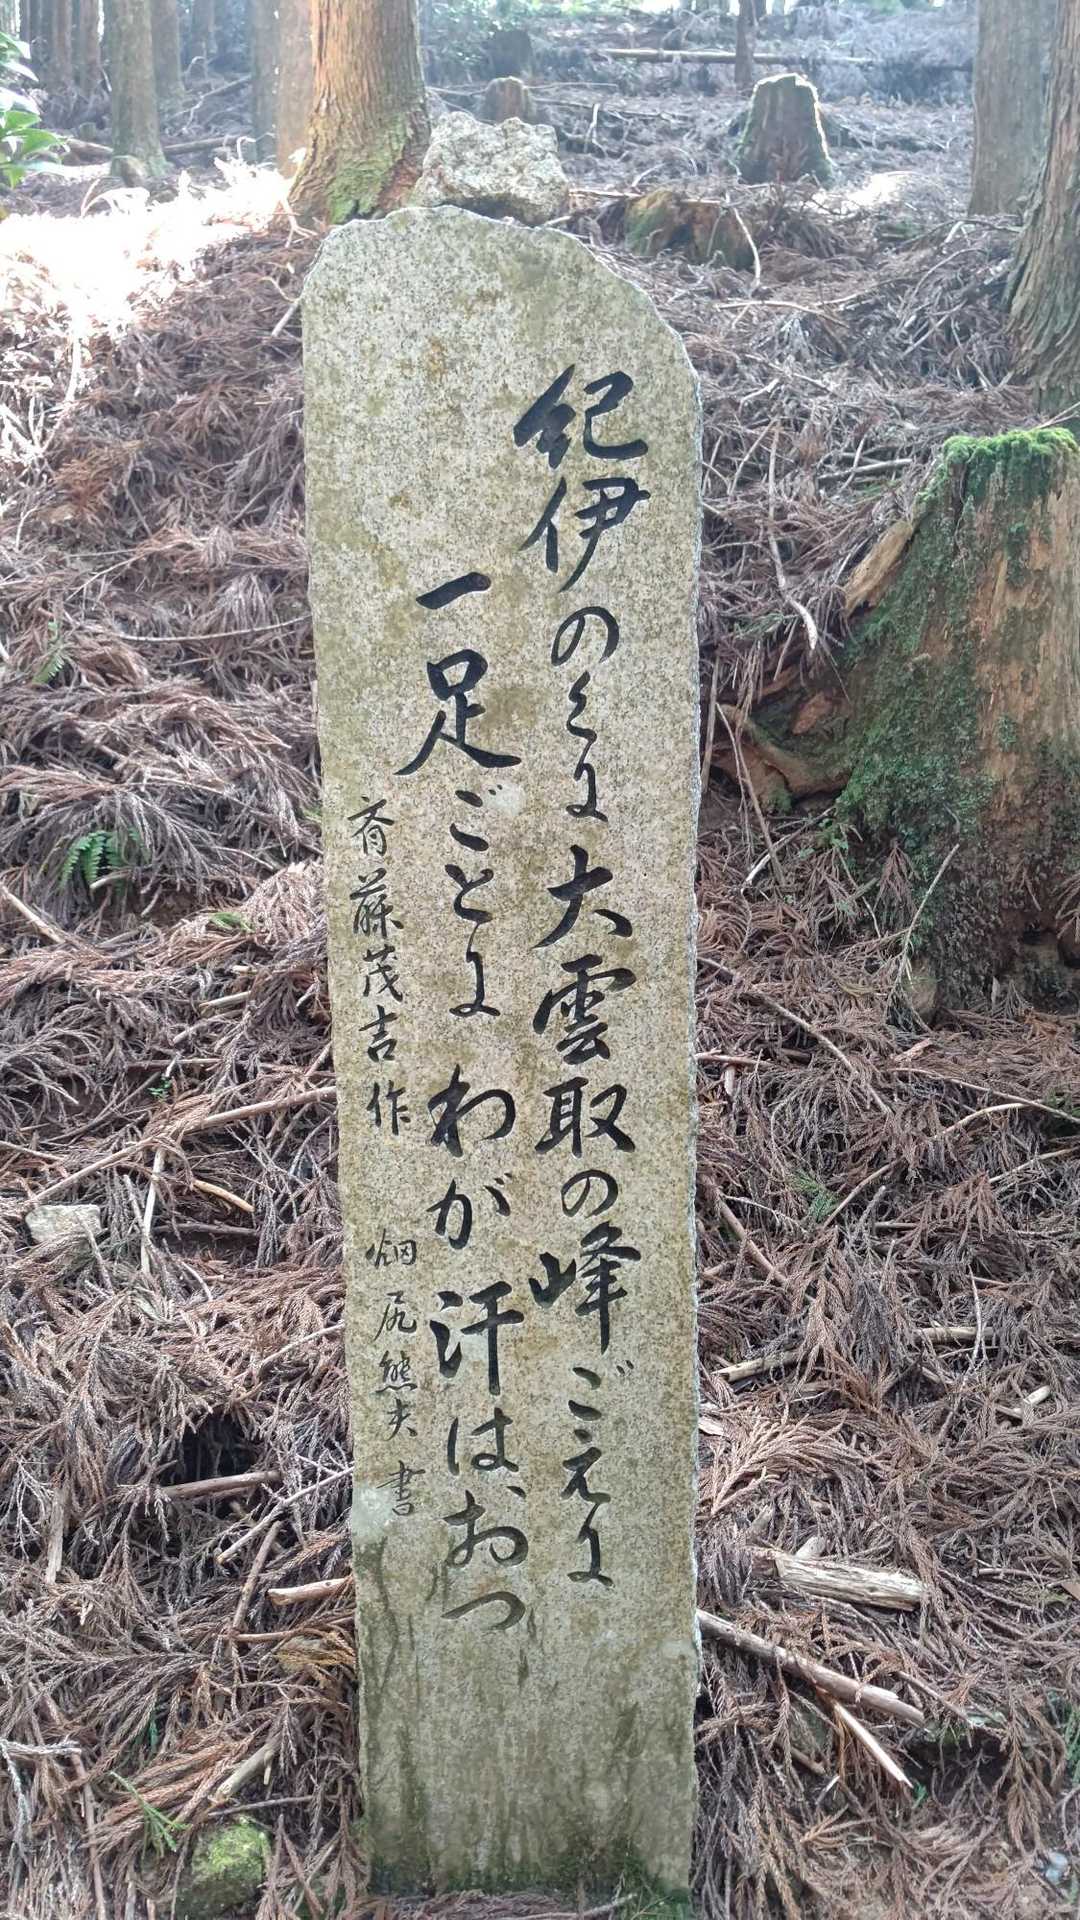 紀伊のくに大雲取の峰ごえに
一足ごとにわが汗はおつ
斉藤茂吉作 畑尻熊夫書